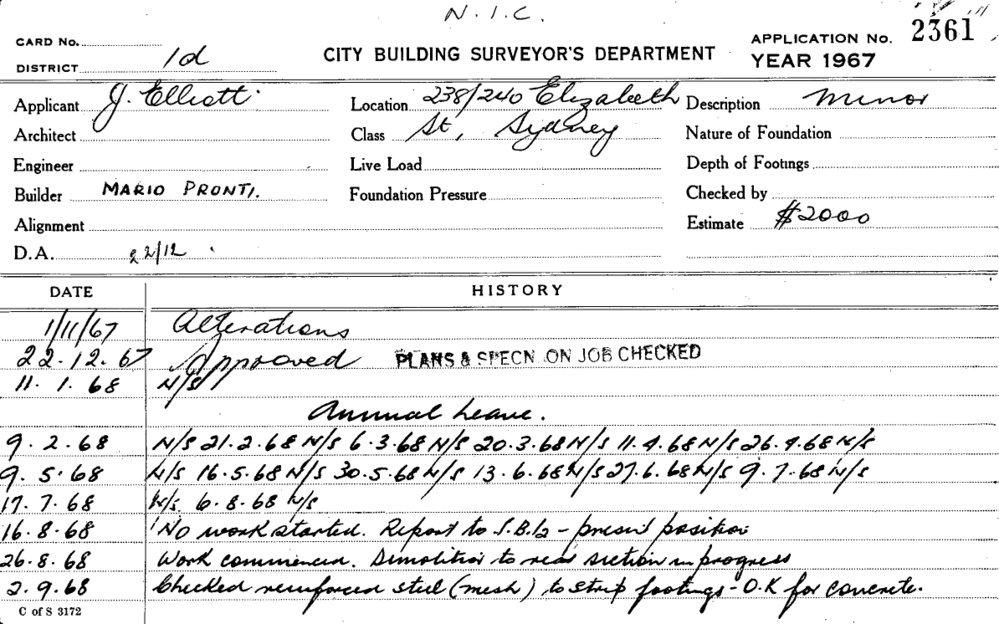 N.I.C.
CARD No.
CITY BUILDING SURVEYOR'S DEPARTMENT
APPLICATION No. 2361
DISTRICT 1d
YEAR 1967
Applicant J. Elliott
Location 238/240 Elizabeth
Description Minor
Architect
Class St, Sydney
Nature of Foundation
Engineer
Live Load
Depth of Footings
Builder MARIO PRONTI.
Foundation Pressure
Checked by
Alignment
Estimate $2000
D.A. 22/12
DATE HISTORY
1/11/67 Alterations
22.12.67 Approved PLANS & SPECN. ON JOB CHECKED
11. 1. 68 N/S
Annual Leave.
9. 2. 68 N/S 21.2.68 N/S 6.3.68 N/S 20.3.68 N/S 11.4.68 N/S 26.4.68 N/S
9. 5. 68 N/S 16.5.68 N/S 30.5.68 N/S 13.6.68 N/S 27.6.68 N/S 9.7.68 N/S
17. 7. 68 N/S 6.8.68 N/S
16. 8. 68 No work started. Report to - present position
26. 8. 68 Work commenced. Demolition to rear section in progress
2. 9. 68 Checked reinforced steel (mesh) to strip footings - O.K for concrete.
C of S 3172